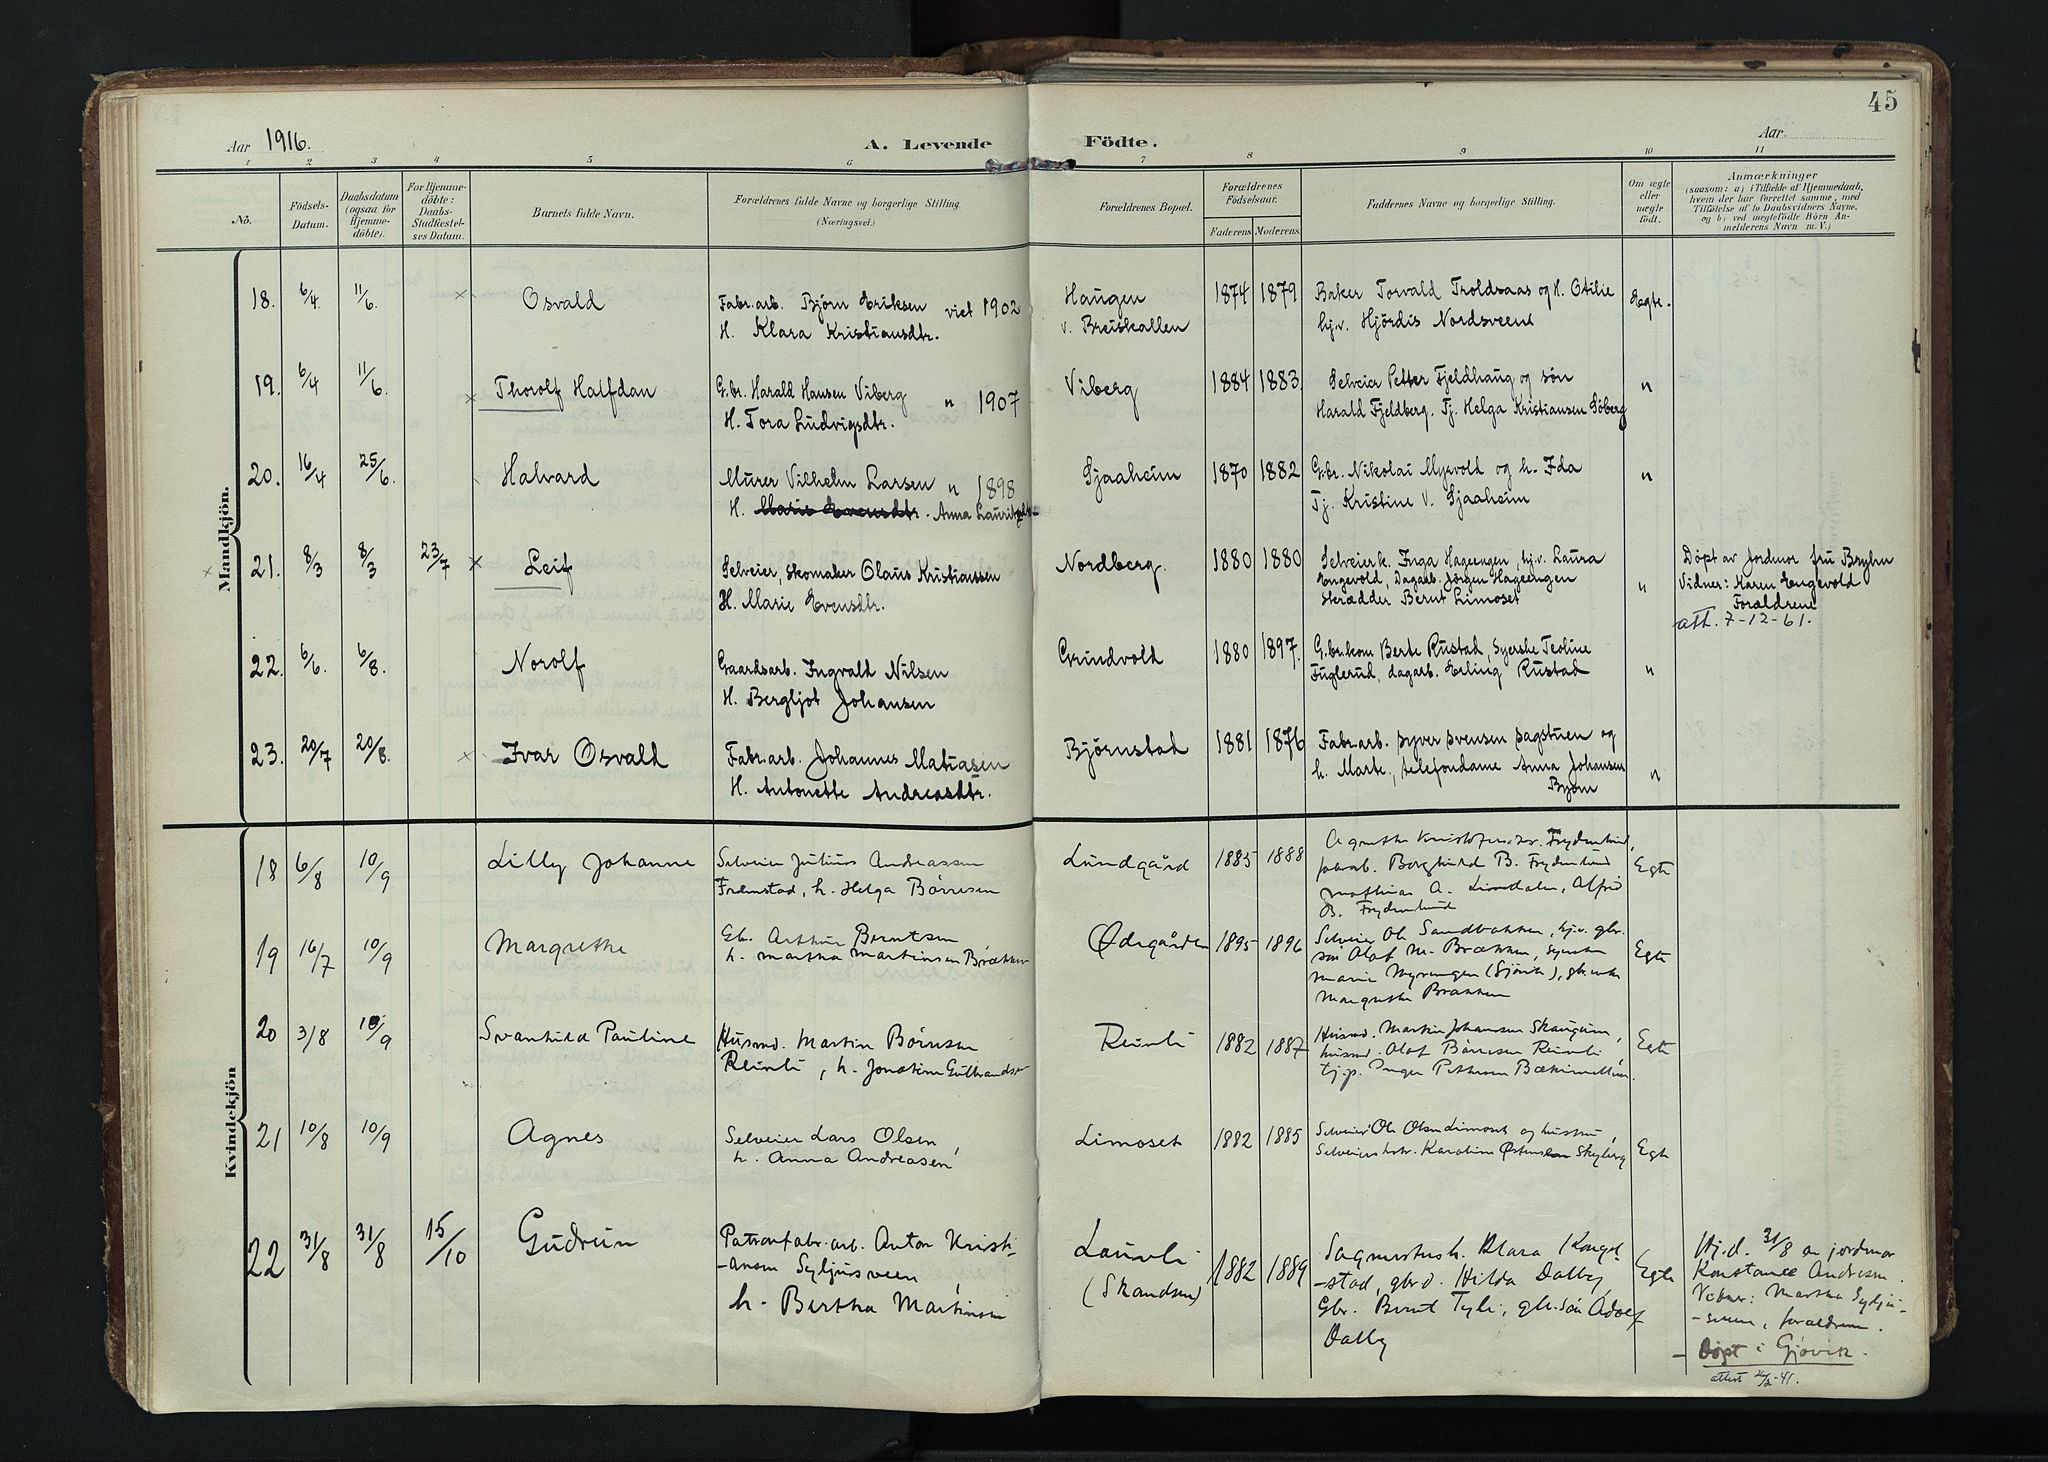 45
Aar 1916.
A. Levende
Födte.
Aar.
1 2 3 4 5 6 7 8 9 10 11
No.
Födsels-
Datum.
Daabsdatum
(ogsaa for
Hjemme-
döbte).
For Hjemme-
döbte:
Daabs-
Stadfæstel-
ses Datum.
Barnets fulde Navn.
Forældrenes fulde Navne og borgerlige Stilling.
(Næringsvei.)
Forældrenes Bopæl.
Forældrenes
Födselsaar.
Faderens Moderens
Faddernes Navne og borgerlige Stilling.
Om ægte
eller
uægte
födt.
Anmærkninger
(saasom: a) i Tilfælde af Hjemmedaab,
hvem der har forrettet samme, med
Tilföielse af to Daabsvidners Navne,
og b) ved uegtefödte Börn An-
melderens Navn m. V.)
Mandkjön.
18. 6/4. 11/6. × Osvald
Fabr.arb. Bjørn Eriksen viet 1902
H. Klara Kristiansdtr.
Haugen
v. Breiskallen
1874 1879
Baker Torvald Troldraas og H. Otilie
hj.v. Hjördis Nordsveene
Egte.
19. 6/4 11/6. × Thorolf Halfdan
G.br. Harald Hansen Viberg " 1907
H. Tora Ludvigsdtr.
Viberg
1884 1883.
Selveier Petter Fjeldhaug og søn
Harald Fjeldberg. Tj. Helga Kristiansen Söberg
"
20. 16/4 25/6. Halvard
Murer Vilhelm Larsen " 1898
H. Marie Evensdtr. Anna
Sjaaheim
1870 1882
G.br. Nikolai Myrvold og h. Ida
Tj. Kristine V. Sjaaheim
"
× 21. 8/3 8/3 23/7 × Leif
Selveier, skomaker Olaus Kristianssen
H. Marie Evensdtr.
Nordberg.
1880 1880
Selveierk. Inga Hageengen, hj.v. Laura
Engevold, Dagarb. Jörgen Hageengen
Skrædder Bernt Limoset
"
Döpt av Jordmor fru Bryhn
Vidner: Karen Engevold
Forældrene
att. 7-12-61.
22. 6/6. 6/8. Norolf
Gaardsarb. Ingvald Nilsen
H. Bergljot Johansen
Grindvold
1880 1897.
G.br.kom Berte Rustad, Syerske Teoline
Fuglerud, dagarb. Erling Rustad
"
23. 20/7 20/8. × Ivar Osvald
Fabr.arb. Johannes Matiasen
H. Antonette Andreasdtr.
Björnstad
1881 1876
Fabr.arb. Syver Svensen Sagstuen og
h. Marte, telefondame Anna Johansen
Byom
"
Kvindekjön
18 6/8 10/9 Lilly Johanne
Selveier Julius Andreassen
Fremstad, h. Helga Børresen
Lundgård
1885 1888
Agnethe Kristofersdtr. Frydenlund,
Borghild B. Frydenlund
Mathias A. Limdalen, Alfred
B. Frydenlund
Egte
19 16/7 10/9 Margrethe
Gb. Arthur Berntsen
h. Martha Martinsen Brækken
Ødegården
1895 1896
Selveier Ole Sandbakken, hj.v. gbr.
søn Olaf M. Brækken, syerske
Marie Myrengen (Gjövik),
Margrethe Brækken
Egte
20 3/8 10/9 Svanhild Pauline
Husmd. Martin Børresen
Reinli, h. Jonatine Gulbrandsen
Reinli
1882 1887
Husmd. Martin Johannsen Skaugum,
husmd. Olaf Børresen Reinli,
tj.p. Inger Pettersen
Egte
21 10/8 10/9 Agnes
Selveier Lars Olsen,
h. Anna Andreasen
Limoset
1882 1885
Selveier Ole Olsen Limoset og hustru,
Selveierhstr. Karoline Østensen Skyberg
Egte
22 31/8 31/8 15/10 Gudrun
Patronfabr.arb. Anton Kristi-
-ansen Syljusveen,
h. Bertha Martinsen
Lauvli
(Skandsen)
1882 1889
Sagmesterh. Klara Kongel-
-stad, gbr.d. Hilda Dalby,
Gbr. Bernt Tyli, gb.søn Adolf
Dalby
Egte
Hj.d. 31/8 av jordmor
Konstance Andresen.
Vidner: Martha Sylju-
-sveen, forældrene.
- Döpt i Gjøvik.
attest -41.